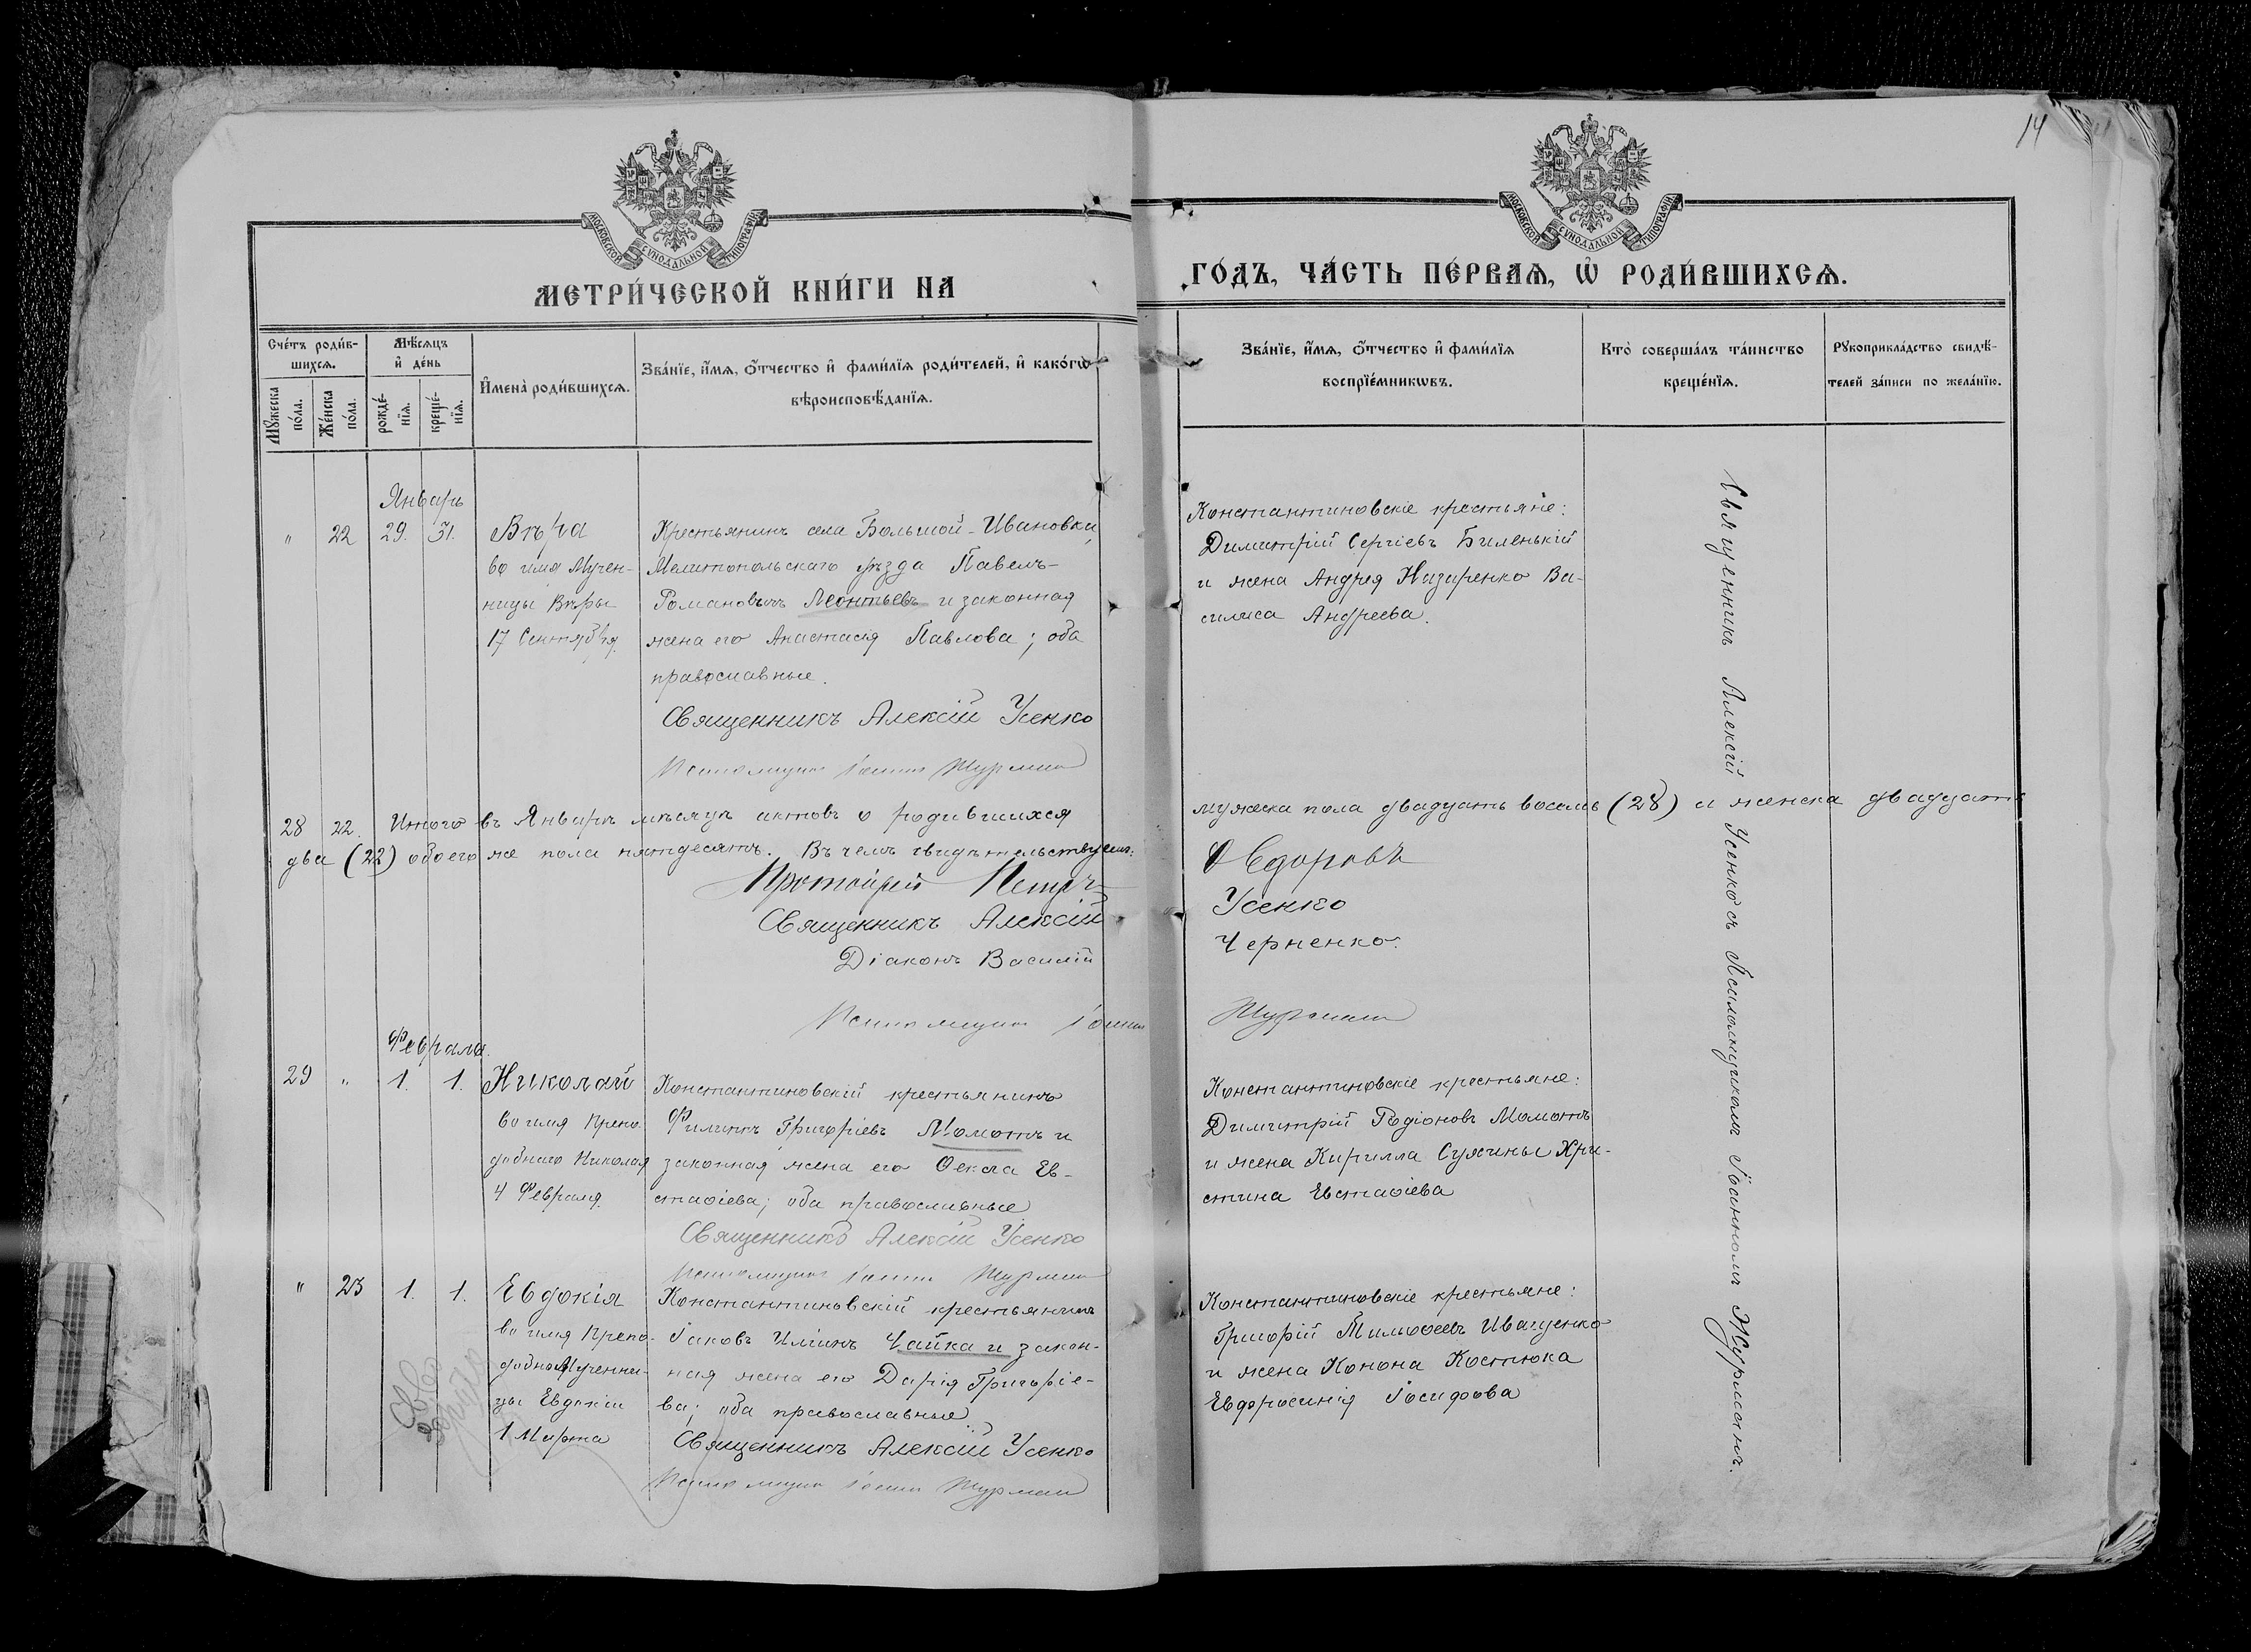 14
МОСКОВСКОЙ СѴНОДАЛЬНОЙ ТИПОГРАФІИ
МОСКОВСКОЙ СѴНОДАЛЬНОЙ ТИПОГРАФІИ
МЕТРИ́ЧЕСКОЙ КНИ́ГИ НА
ГО́ДЪ, ЧА́СТЬ ПЕ́РВАѦ, Ѽ РОДИ́ВШИХСѦ.
Сче́тъ роди́в-
шихсѧ.
Мꙋ́жеска
по́ла.
Же́нска
по́ла.
Мѣ́сѧцъ
и҆ де́нь
рожде́-
нїѧ.
креще́-
нїѧ.
И҆мена̀ роди́вшихсѧ.
Зва́нїе, и҆́мѧ, ѻ҆́тчество и҆ фами́лїѧ роди́телей, и҆ како́гѡ
вѣроисповѣ́данїѧ.
Зва́нїе, и҆́мѧ, ѻ҆́тчество и҆ фами́лїѧ
воспрїе́мникѡвъ.
Кто̀ соверша́лъ та́инство
креще́нїѧ.
Рꙋкоприкла́дство свидѣ́-
телей за́писи по жела́нїю.
Январь
" 22 29. 31. Вѣра
во имя Мучен-
ницы Вѣры
17 Сентября.
Крестьянинъ села Большой-Ивановки,
Мелитопольскаго уѣзда Павелъ
Романовъ Леонтьевъ и законная
жена его Анастасія Павлова; оба
православные.
Священникъ Алексій Усенко
Псаломщикъ Іоаннъ Журманъ
Константиновскіе крестьяне:
Димитрій Сергіевъ Биленькій
и жена Андрея Назаренко Ва-
силиса Андреева.
28 22. Итого въ Январѣ мѣсяцѣ актовъ о родившихся мужеска пола двадцать восемь (28) и женска двадцать
два (22) обоего же пола пятдесятъ. Въ чемъ свидѣтельствуемъ:
Протоіерей Петръ Ѳедоровъ
Священникъ Алексій Усенко
Діаконъ Василій Черненко.
Псаломщикъ Іоаннъ Журманъ
Февраль.
29 " 1. 1. Николай
во имя Препо-
добнаго Николая
4 Февраля.
Константиновскій крестьянинъ
Филиппъ Григоріевъ Момотъ и
законная жена его Ѳекла Ев-
стаѳіева; оба православные
Священникъ Алексій Усенко
Псаломщикъ Іоаннъ Журманъ
Константиновскіе крестьяне:
Димитрій Родіоновъ Момотъ
и жена Кирилла Сужины Хри-
стина Евстаѳіева
" 23 1. 1. Евдокія
во имя Препо-
добномученни-
цы Евдокіи
1 Марта
Константиновскій крестьянинъ
Іаковъ Иліинъ Чайка и закон-
ная жена его Дарія Григоріе-
ва; оба православные.
Священникъ Алексій Усенко
Псаломщикъ Іоаннъ Журманъ
Константиновскіе крестьяне:
Григорій Тимоѳеевъ Иващенко
и жена Конона Костюка
Евфросинія Іосифова
Священникъ Алексій Усенко съ Псаломщикомъ Іоанномъ Журманъ.